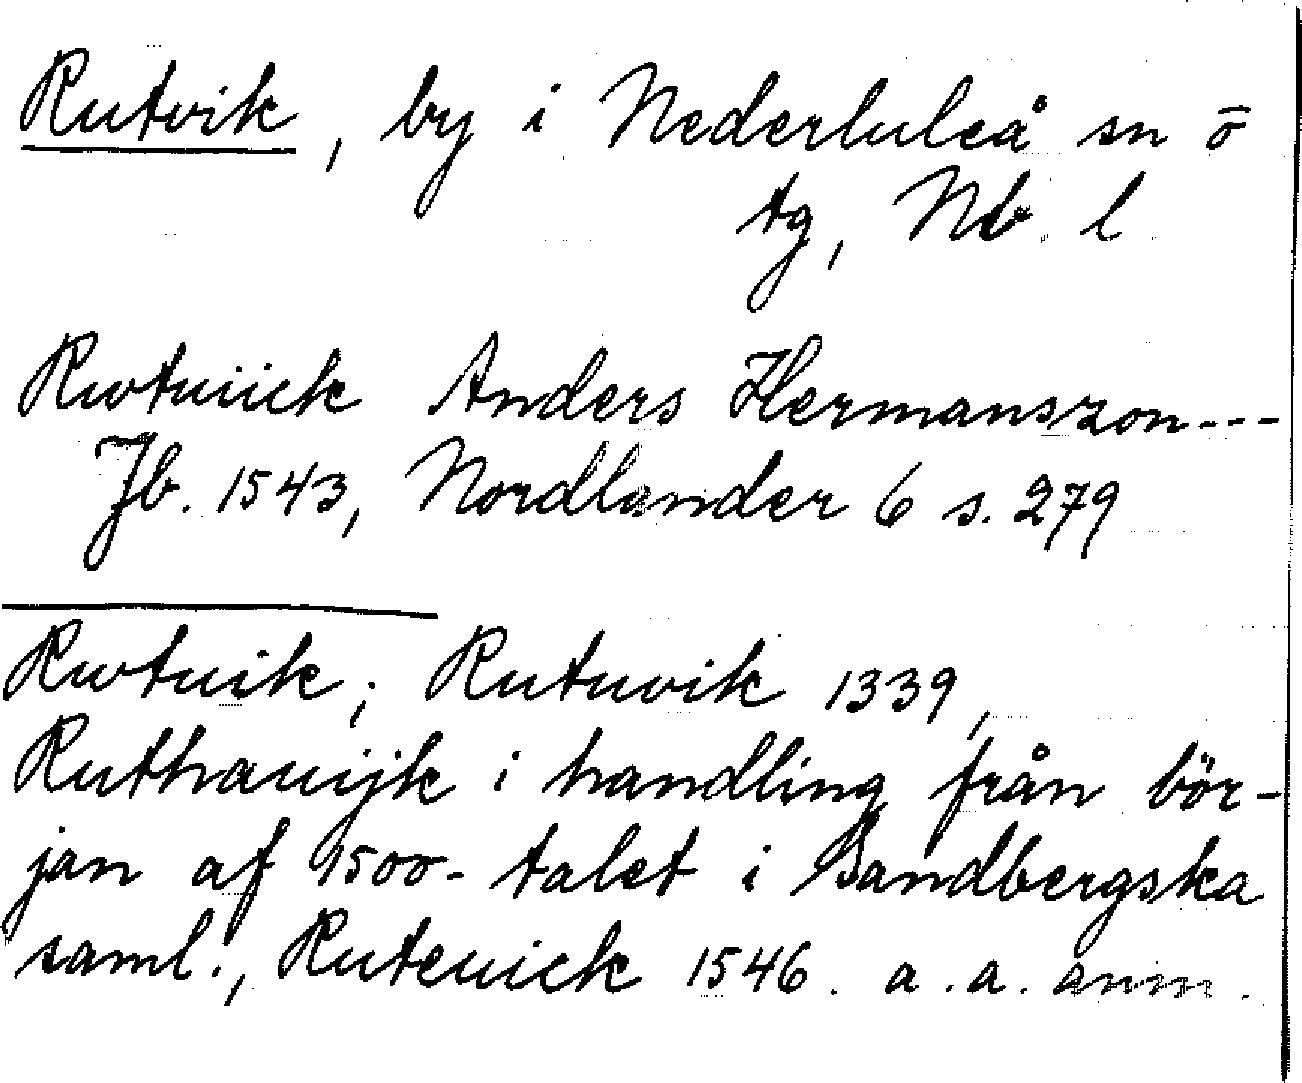 Rutvik, by i Nederluleå sn ö
tg, Nb. l
Rwtuiick Anders Hermanszon---
Jb. 1543, Nordlander 6 s. 279
Rwtuik; Rutuvik 1339,
Ruthauijk i handling från bör-
jan af 1500-talet i Sandbergska
saml., Ruteuick 1546. a.a. anm.